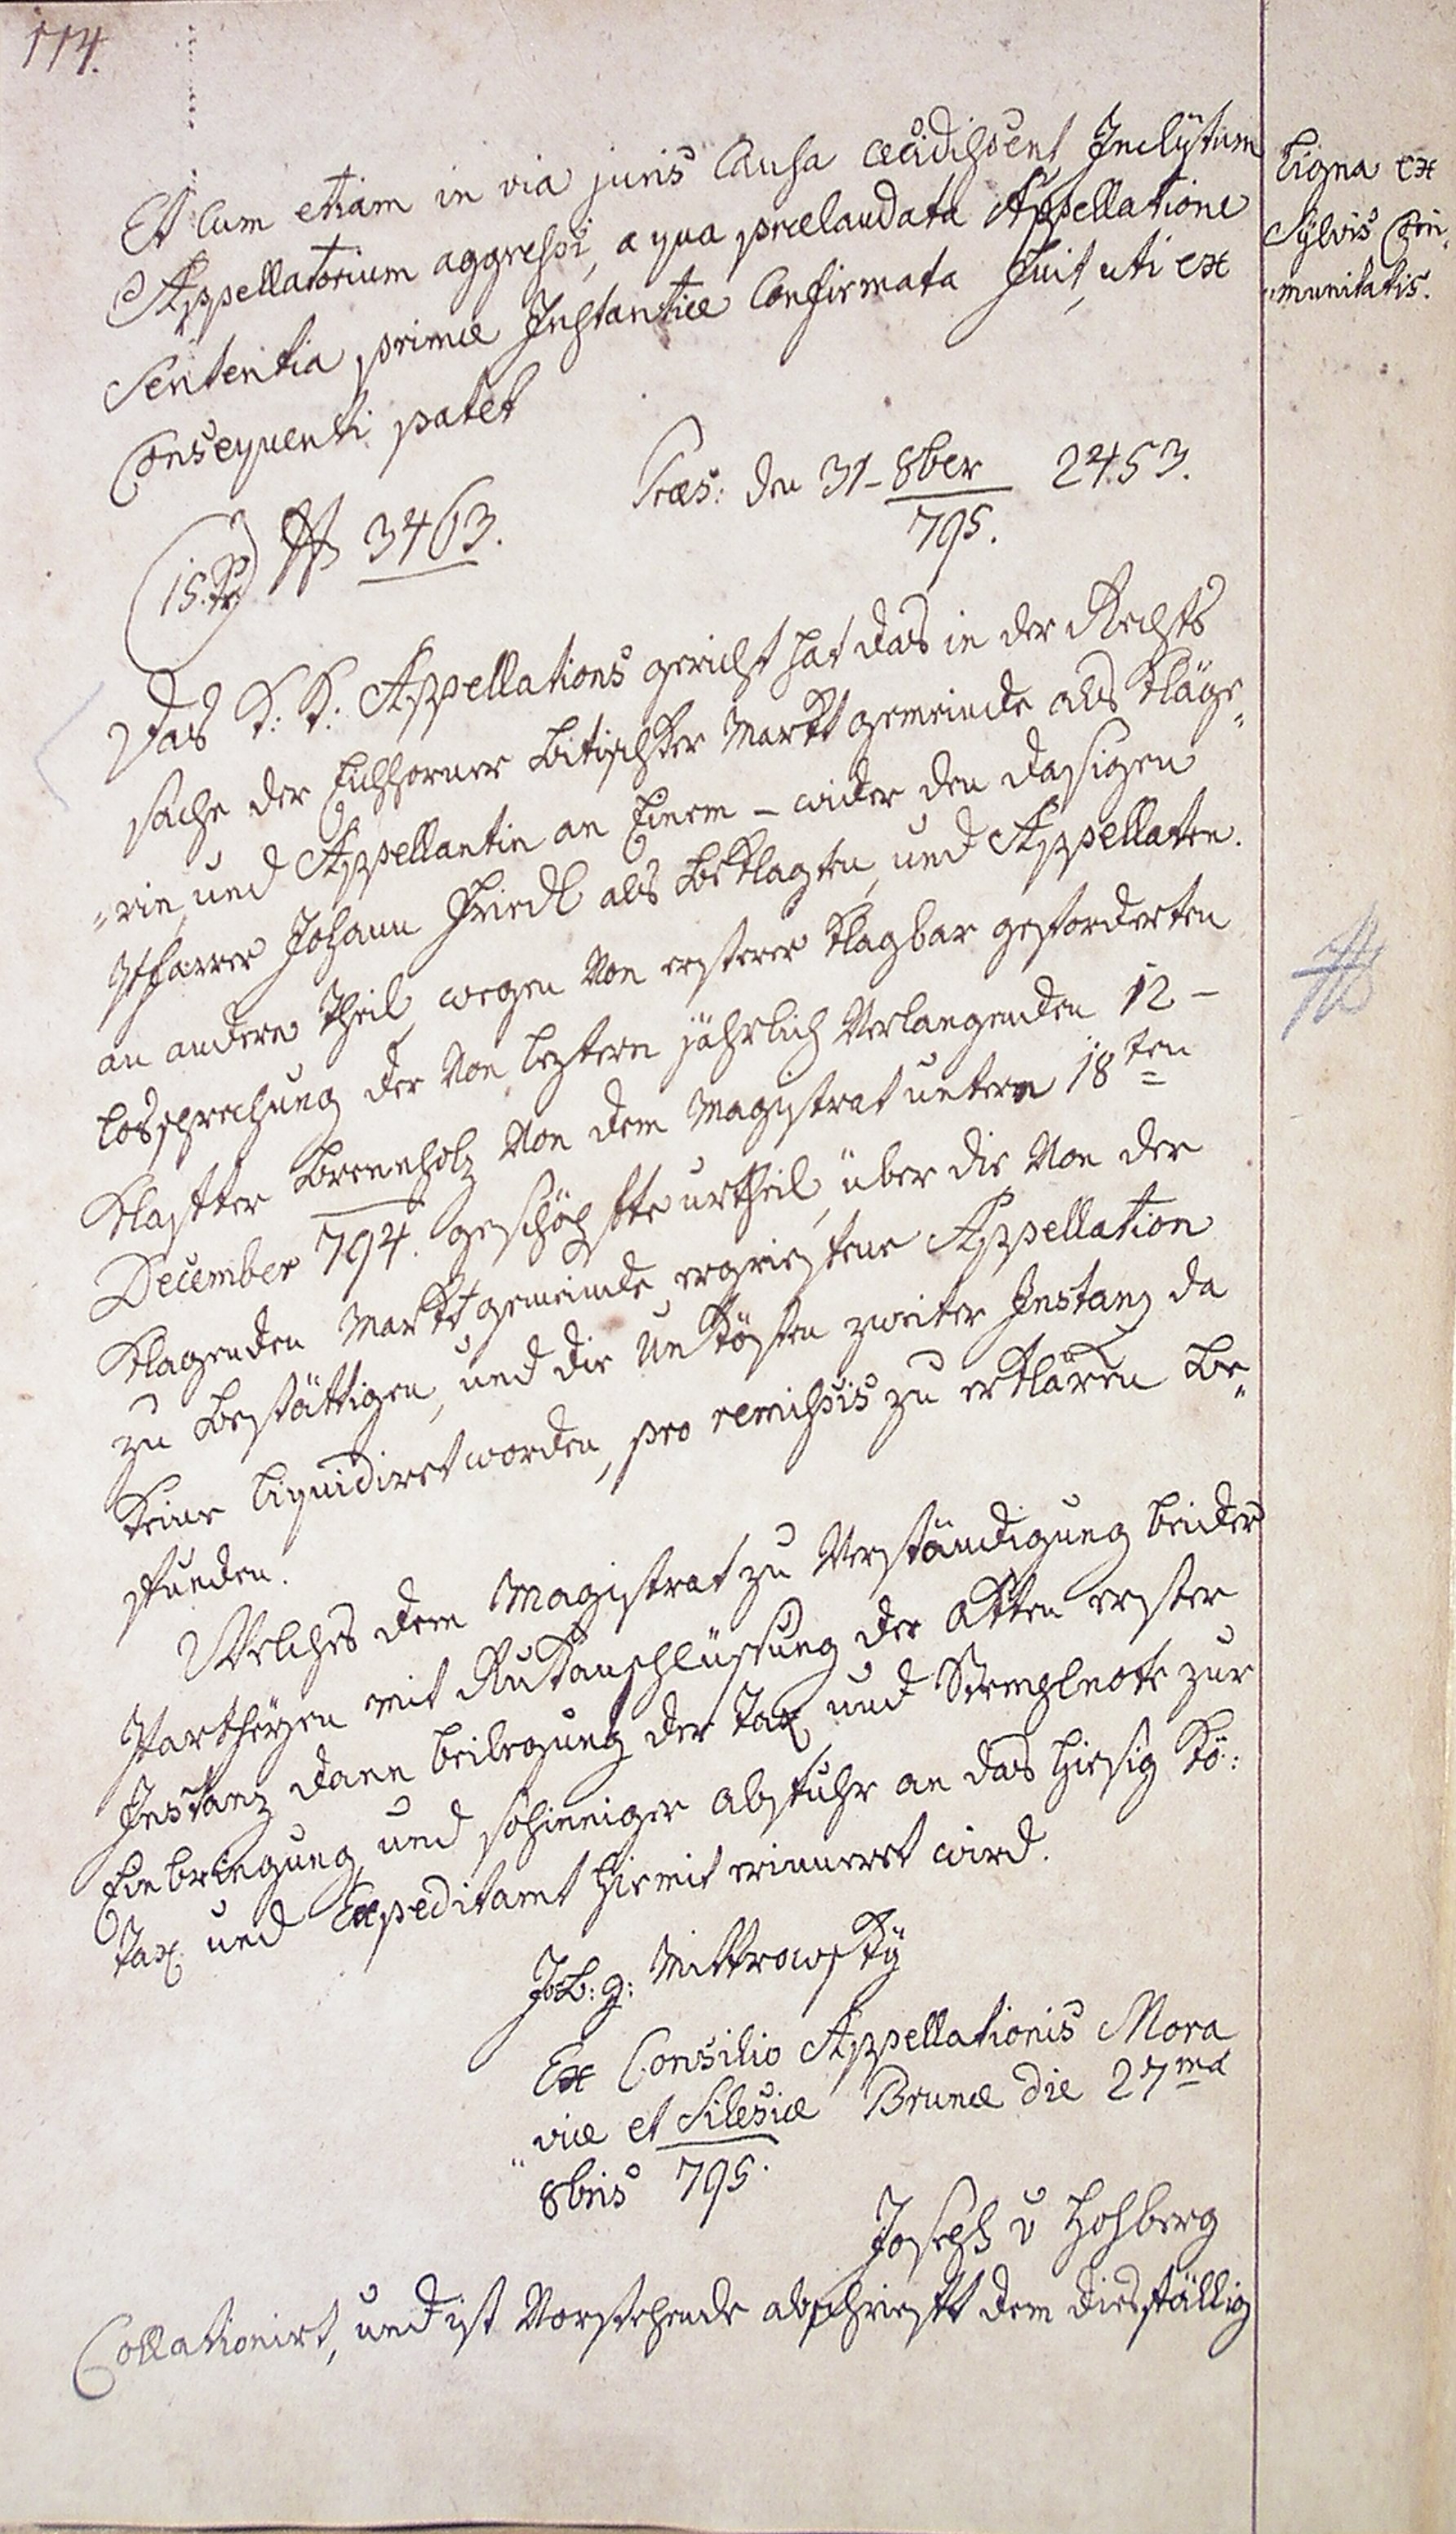 114.
Et cum etiam in via juris Causa cecidissent Inclytum
Appellatorium aggressi, a qua prælaudata Appellatione
Sententia primæ Instantiæ Confirmata fuit, uti ex
Consequenti patet
Præs: den 31 - 8ber 2453.
795.
15. kr № 3463.
Das K: K: Appellations gericht hat das in der Rechts
sache der Eichhorner Bitischker Marktgemeinde als Kläge„
„rin, und Appellantin an Einem – wider den dasigen
Pfarrer Johann Friedl als Beklagten, und Appellaten.
an andern Theil, wegen von ersterer klagbar geforderten
lossprechung der von leztern jährlich verlangenden 12 –
Klafter Brennholz von dem Magistrat unterm 18ten
December 794. geschöpfte urtheil, über die von der
klagenden Marktgemeinde ergriefene Appellation
zu bestättigen, und die Unkösten zweiter Instanz da
keine liquidiret worden, pro remissis zu erklären be„
funden.
Welches dem Magistrat zu Verständigung beider
Partheyen mit Rukanschlüssung der Akten erster
Instanz dann beilegung der Tax, und Stempelnote zur
Einbringung, und sohinniger abfuhr an das hiesig Kö:
Tax und Expeditamt hiemit erinneret wird.
Joh: g: Mittrowsky
Ex Consilio Appellationis Mora
„viæ et Silesiæ Brunæ die 27ma
8bris 795.
Joseph v Hohberg
Collationirt, und ist Vorstehende abschrieft dem diesfällig
Ligna ex
Sylvis Com„
„munitatis.